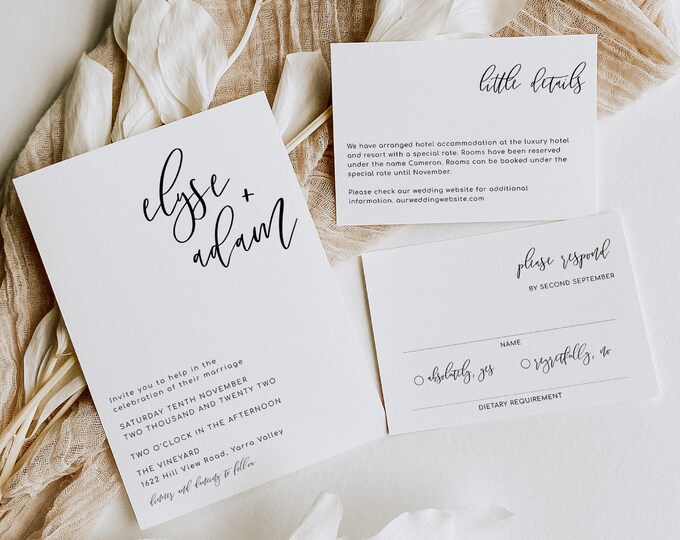 elyse +
adam
Invite you to help in the
celebration of their marriage
SATURDAY TENTH NOVEMBER
TWO THOUSAND AND TWENTY TWO
TWO O'CLOCK IN THE AFTERNOON
THE VINEYARD
1622 Hill View Road, Yarra Valley
dinner and dancing to follow
little details
We have arranged hotel accommodation at the luxury hotel
and resort with a special rate. Rooms have been reserved
under the name Cameron. Rooms can be booked under the
special rate until November.
Please check our wedding website for additional
information. ourweddingwebsite.com
please respond
BY SECOND SEPTEMBER
NAME
absolutely, yes regretfully, no
DIETARY REQUIREMENT